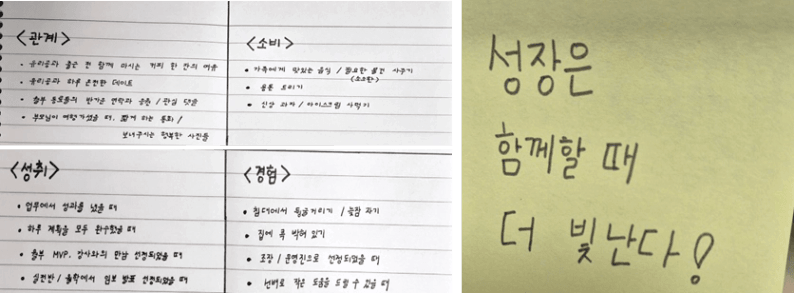 <관계>
출근 전 함께 마시는 커피 한 잔의 여유
하루 온전한 데이트
동료들의 반가운 연락과 응원 / 관심 댓글
부모님이 여행가셨을 때, 짧게 하는 통화 /
보내주시는 행복한 사진들
<소비>
• 가족에게 맛있는 음식 / 필요한 물건 사주기
(소소한)
• 용돈 드리기
• 신상 과자 / 아이스크림 사먹기
<성취>
• 업무에서 성과를 냈을 때
• 하루 계획을 모두 완수했을 때
• MVP, 강사와의 만남 선정되었을 때
• 실전반 / 에서 발표 선정되었을 때
<경험>
• 침대에서 뒹굴거리기 / 늦잠 자기
• 집에 콕 박혀 있기
• 조장 / 운영진으로 선정되었을 때
• 선배로 작은 도움을 드릴 수 있을 때
성장은
함께할 때
더 빛난다!